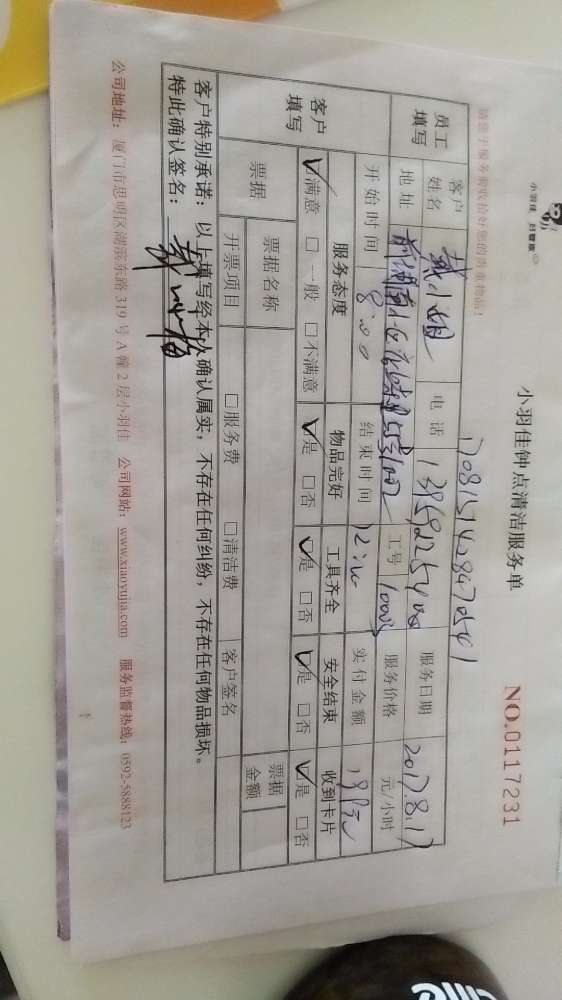 小羽佳
小羽佳钟点清洁服务单
NO.0117231
客户姓名 戴小姐 电话 服务日期 2017.8.17
员工填写
地址 工号 服务价格 元/小时
开始时间 8:00 结束时间 12:00 实付金额
客户填写
服务态度 物品完好 工具齐全 安全结束 收到卡片
☑满意 □一般 □不满意 ☑是 □否 ☑是 □否 ☑是 □否 ☑是 □否
票据 票据名称 票据金额
开票项目 □服务费 □清洁费 客户签名
客户特别承诺：以上填写经本人确认属实，不存在任何纠纷，不存在任何物品损坏。
特此确认签名：
公司地址：厦门市思明区湖滨东路319号A幢2层小羽佳 公司网站：www.xiaoyujia.com 服务监督热线：0592-5888123